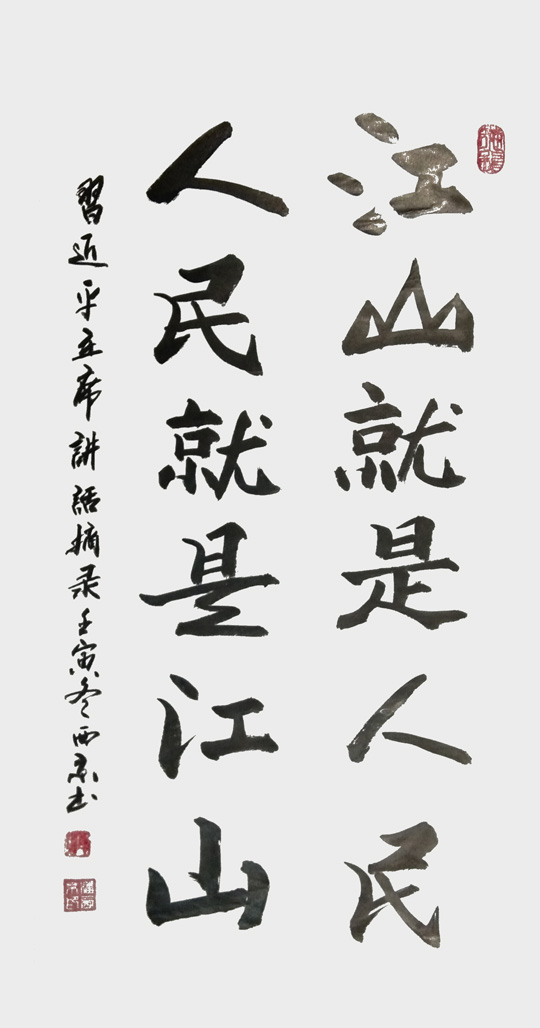 江山就是人民
人民就是江山
習近平主席講話摘录壬寅冬西泉书